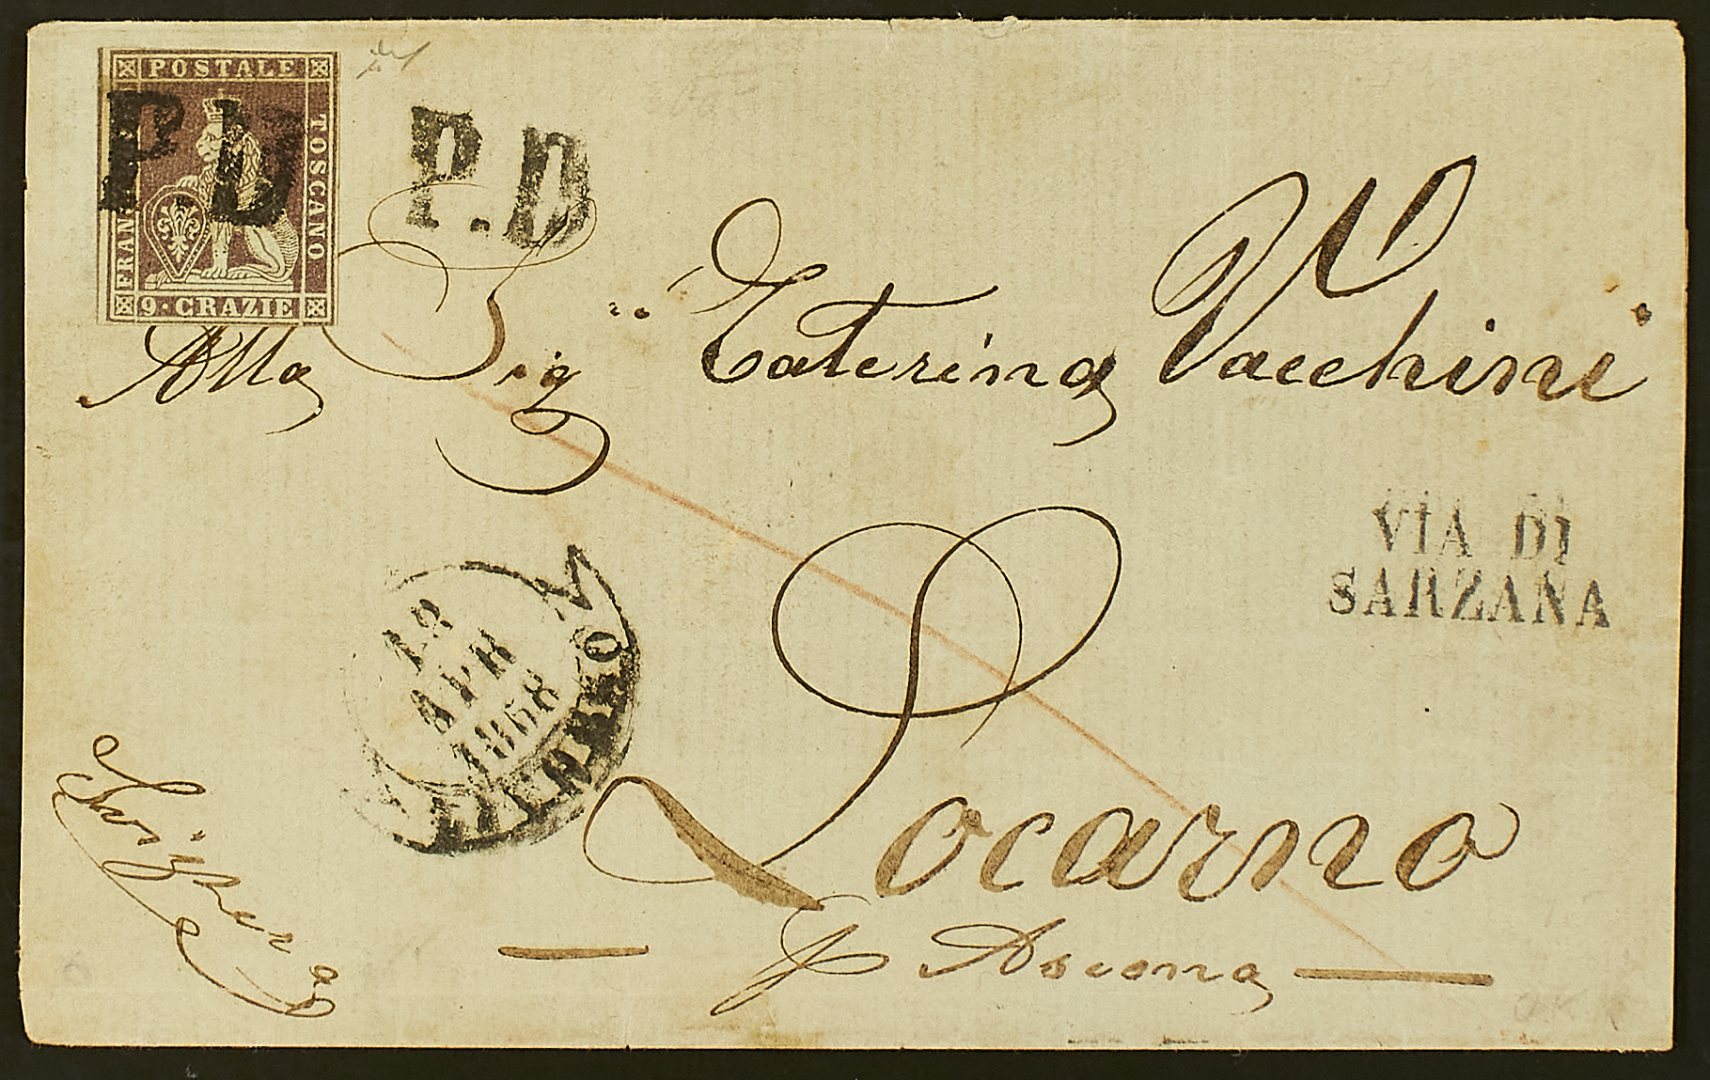 POSTALE
TOSCANO
FRAN
9·CRAZIE
P.D
P.D
Alla Sig.ra Caterina Vacchini
VIA DI
SARZANA
18
APR
1868
Locarno
p Ascona
Svizzera